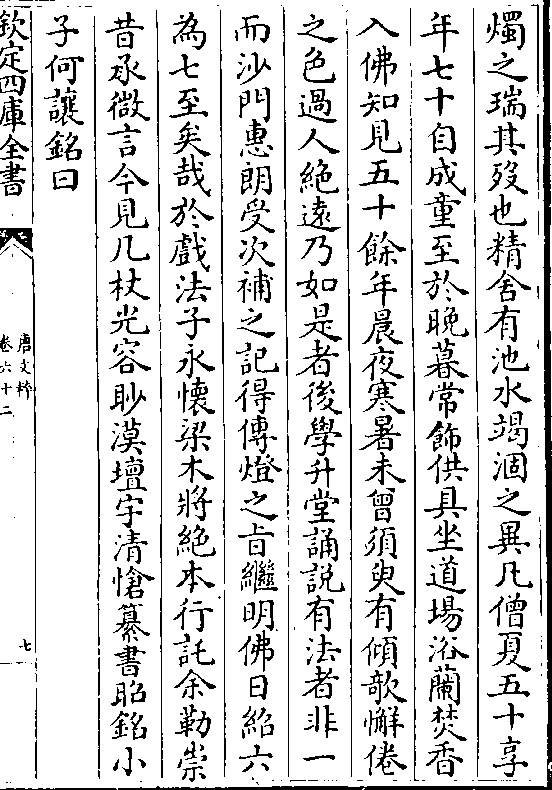 燭之瑞其歿也精舍有池水竭涸之異凡僧夏五十享
年七十自成童至於晚暮常飾供具坐道場浴蘭焚香
入佛知見五十餘年晨夜寒暑未曾須臾有傾欹懈倦
之色過人絶遠乃如是者後學升堂誦説有法者非一
而沙門惠朗受次補之記得傳燈之旨繼明佛日紹六
為七至矣哉於戲法子永懷梁木將絶本行託余勒崇
昔承微言今見几杖光容眇漠壇宇清愴纂書昭銘小
子何讓銘曰
欽定四庫全書
唐文粹
卷六十二
七